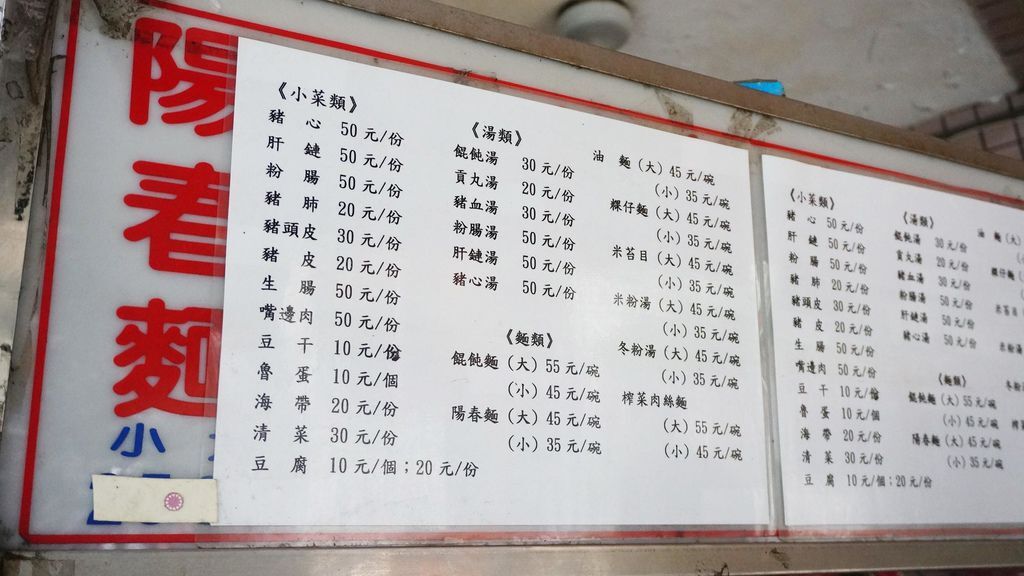 陽春麵
小
《小菜類》
豬 心 50 元/份
肝 鏈 50 元/份
粉 腸 50 元/份
豬 肺 20 元/份
豬頭皮 30 元/份
豬 皮 20 元/份
生 腸 50 元/份
嘴邊肉 50 元/份
豆 干 10 元/份
魯 蛋 10 元/個
海 帶 20 元/份
清 菜 30 元/份
豆 腐 10 元/個；20 元/份
《湯類》
餛飩湯 30 元/份
貢丸湯 20 元/份
豬血湯 30 元/份
粉腸湯 50 元/份
肝鏈湯 50 元/份
豬心湯 50 元/份
《麵類》
餛飩麵 (大) 55 元/碗
(小) 45 元/碗
陽春麵 (大) 45 元/碗
(小) 35 元/碗
油 麵 (大) 45 元/碗
(小) 35 元/碗
粿仔麵 (大) 45 元/碗
(小) 35 元/碗
米苔目 (大) 45 元/碗
(小) 35 元/碗
米粉湯 (大) 45 元/碗
(小) 35 元/碗
冬粉湯 (大) 45 元/碗
(小) 35 元/碗
榨菜肉絲麵
(大) 55 元/碗
(小) 45 元/碗
《小菜類》
豬 心 50 元/份
肝 鏈 50 元/份
粉 腸 50 元/份
豬 肺 20 元/份
豬頭皮 30 元/份
豬 皮 20 元/份
生 腸 50 元/份
嘴邊肉 50 元/份
豆 干 10 元/份
魯 蛋 10 元/個
海 帶 20 元/份
清 菜 30 元/份
豆 腐 10 元/個；20 元/份
《湯類》
餛飩湯 30 元/份
貢丸湯 20 元/份
豬血湯 30 元/份
粉腸湯 50 元/份
肝鏈湯 50 元/份
豬心湯 50 元/份
《麵類》
餛飩麵 (大) 55 元/碗
(小) 45 元/碗
陽春麵 (大) 45 元/碗
(小) 35 元/碗
油 麵 (大)
粿仔麵
米苔目
米粉
冬粉